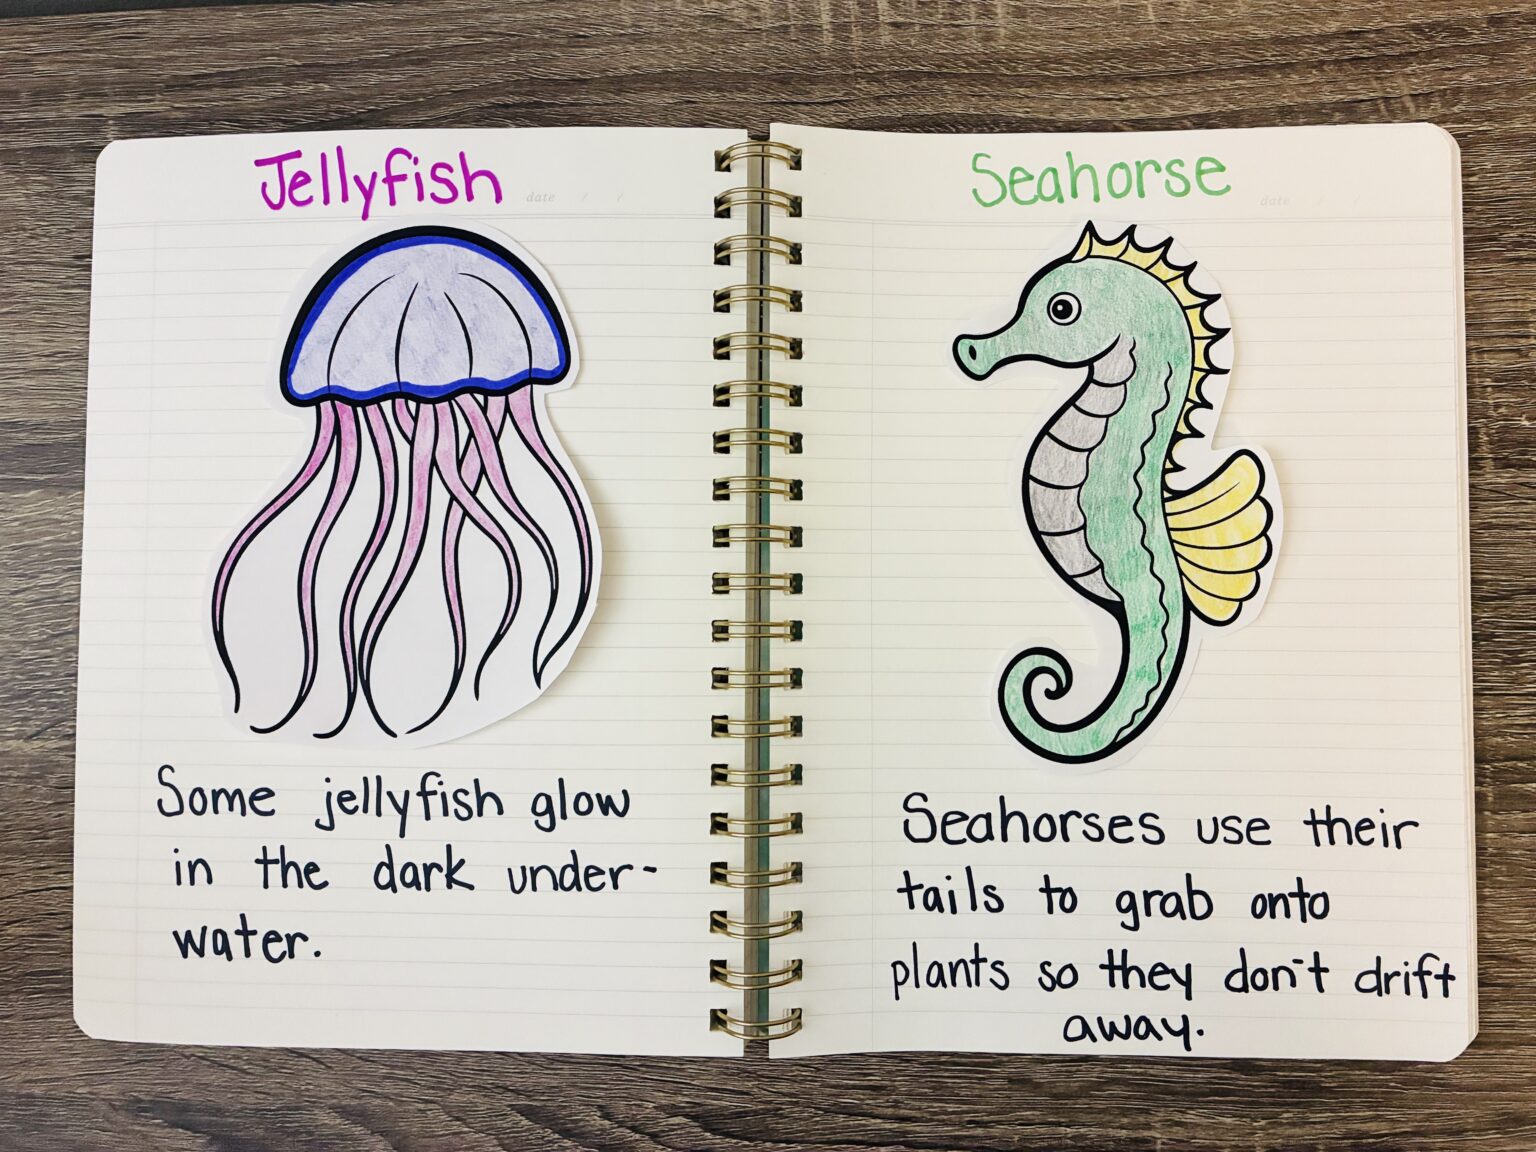 Jellyfish
date / /
Some jellyfish glow
in the dark under-
water.
Seahorse
date / /
Seahorses use their
tails to grab onto
plants so they don't drift
away.